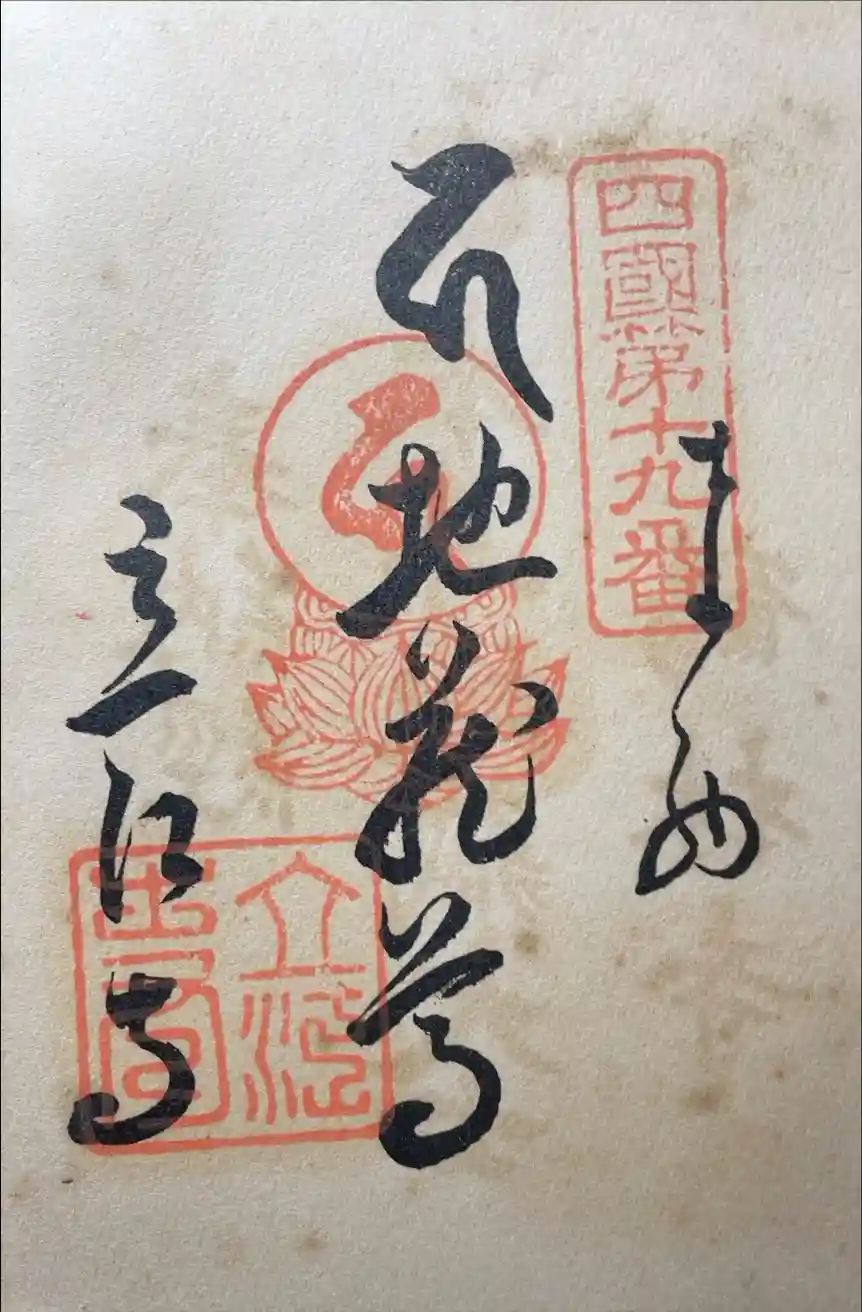 四國第十九番
奉納
地蔵尊
立江寺
立江寺